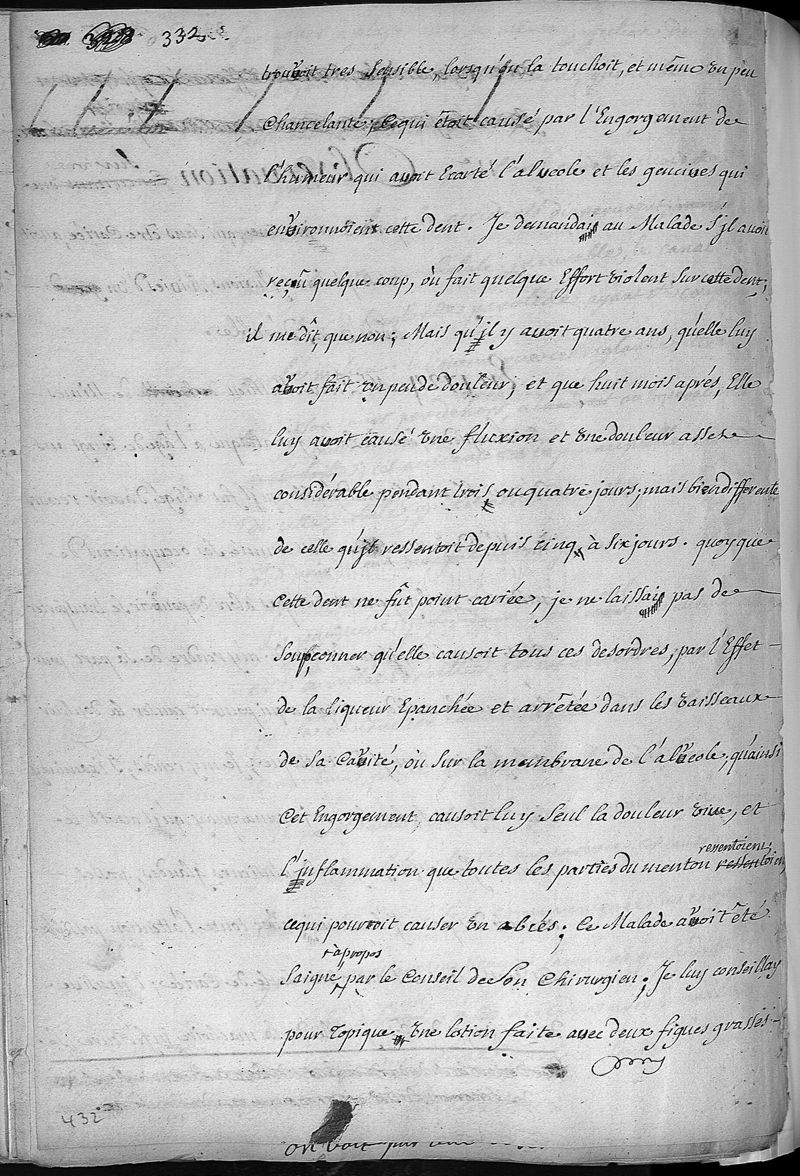 332
trouvoit tres sensible, lorsqu'on la touchoit, et même un peu
chancelante; cequi étoit causé par l'Engorgement de
l'humeur qui avoit Ecarté l'alveole et les gencives qui
environnoient cette dent. Je demandais au Malade S'jl avoit
reçû quelque coup, où fait quelque Effort violent sur cette dent;
il me dît, que non; Mais qu'jl y avoit quatre ans, qu'elle luy
avoit fait un peu de douleur, et que huit mois aprés, Elle
luy avoit causé une fluxion et une douleur assez
considérable pendant trois ou quatre jours; mais bien differente
de celle qu'jl ressentoit depuis cinq à six jours. quoyque
Cette dent ne fût point cariée, je ne laissais pas de
soupçonner qu'elle causoit tous ces desordres, par l'Effet
de la liqueur Epanchée et arrêtée dans les vaisseaux
de sa Cavité, où sur la membrane de l'alveole; qu'ainsi
Cet Engorgement, causoit luy Seul la douleur vive, et
l'jnflammation que toutes les parties du menton ressentoient;
resentoient;
cequi pourroit causer un abcés; Le Malade avoit été
à propos
Saigné par le Conseil de Son Chirurgien; Je luy conseillay
pour Topique, une lotion faite avec deux figues grasses
432
on voit par